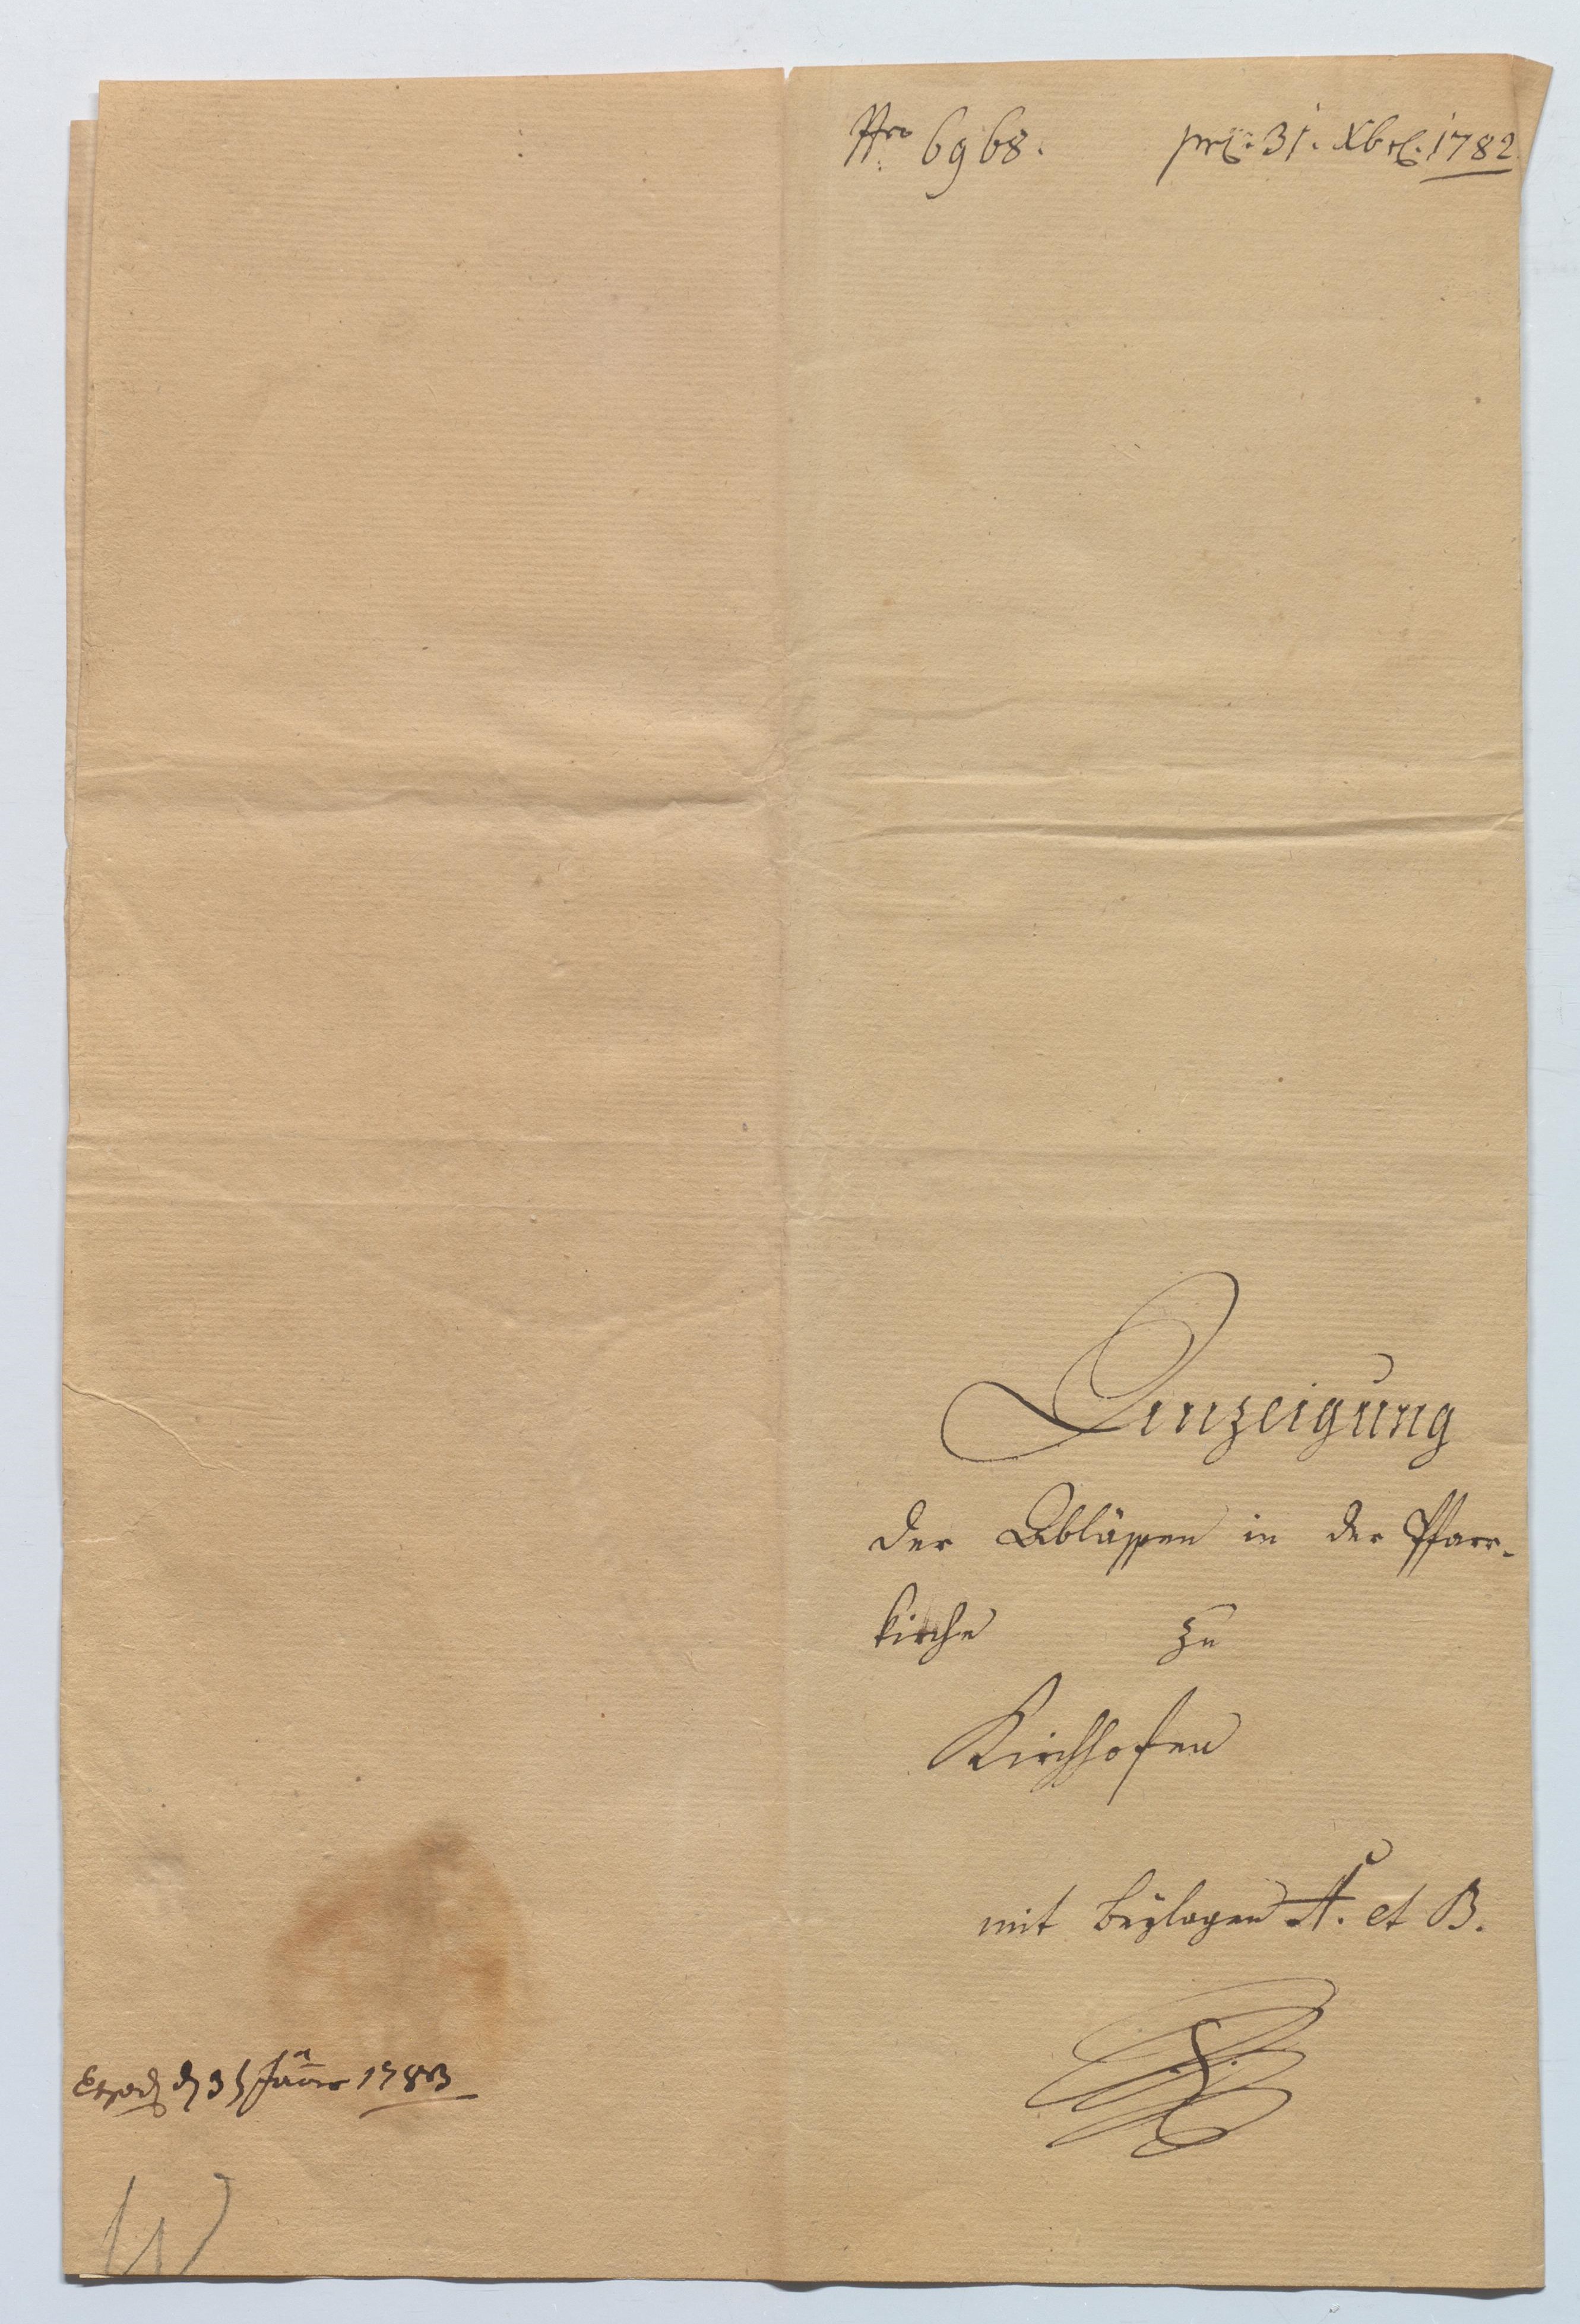 Nro 6968. prs. 31. Xbris. 1782
Anzeigung
der Ablässen in der Pfarr-
kirche zu
Kirchhofen
mit beÿlagen A. et B.
Exped d 31 Jäner 1783
W